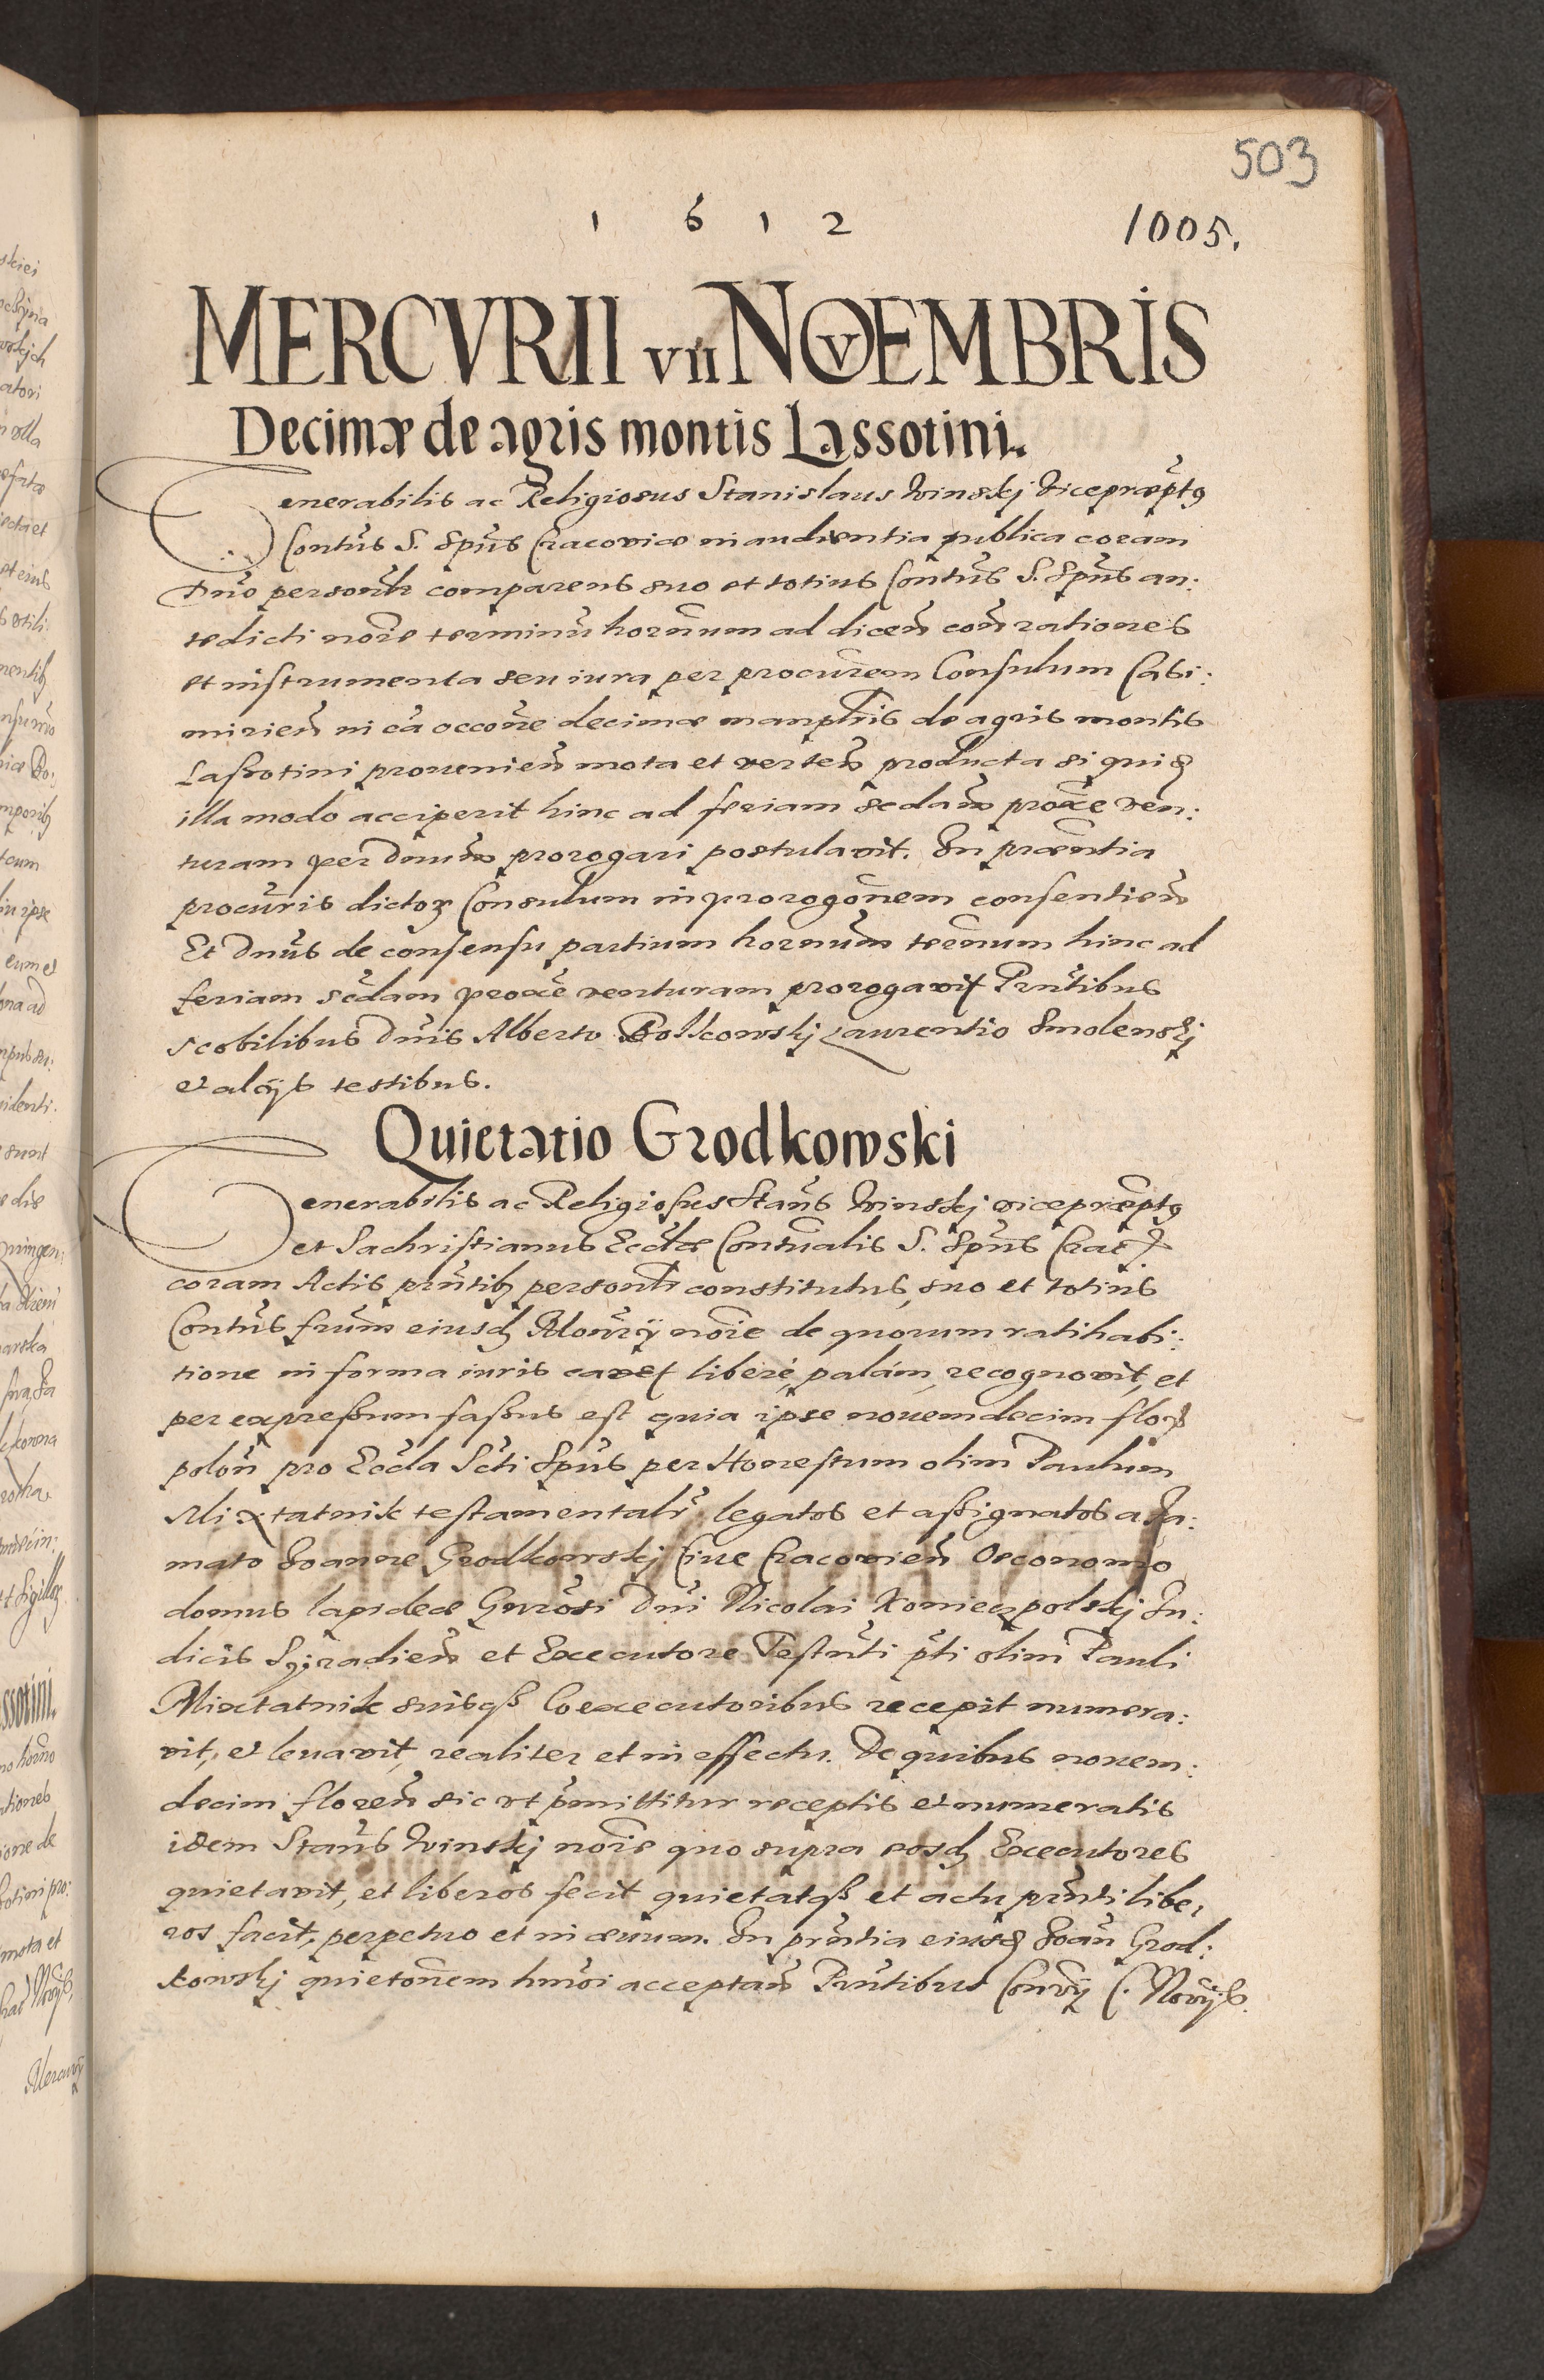 503
1612
1005.
MERCVRII VII NOVEMBRIS
Decimæ de agris montis Lassotini.
Venerabilis ac Religiosus Stanislaus Winskj Vicepræptg
Contus S. Spūs Cracoviæ in audientia publica coram
Dno personłr comparens suo et totius Contūs S. Spūs an:
tedicti noīe terminū hornum ad dicen̄ con̄ rationes
et instrumenta seu iura per procurem̄ Consulum Casi:
mirien̄ in cā occōne decimæ manplīs de agris montis
Lassotini prouenien̄ mota et verten̄ producta si quis
illa modo acciperit hinc ad feriam 2dam proxe ven:
turam per Dnum prorogari postulavit. In præntia
procuris dictor Consulum in prorogōnem consentien̄
Et Dnus de consensu partium hornum termum hinc ad
feriam 2dam proxe venturam prorogavit Prntibus
Nobilibus Dnis Alberto Bolkowskj Laurentio Smolenskj
et alijs testibus.
Quietatio Grodkowski
Venerabilis ac Religiosus Stan̄s Winskj vicepræptg
et Sachristianus Ecclæ Contualis S. Spūs Crac
coram Actis prntib personłr constitutus, suo et totius
Contūs frum eiusd Monrij noīe de quorum ratihabi:
tione in forma iuris cavet libere, palam, recognovit, et
per expressum fassus est quia ipse nouemdecim flor
polon̄ pro Eccla Scti Spūs per Honestum olim Paulum
Mixtatnik testamentalr legatos et assignatos a Fa:
mato Joanne Grodkowskj Ciue Cracovien̄ Oeconomo
domus lapideæ Gnrosi Dni Nicolai Koniecpolskj Ju:
dicis Syradien̄ et Executore Testnti pti olim Pauli
Mixtatnik suisqß Coexecutoribus recepit numera:
vit, et leuavit, realiter et in effectu. De quibus nouem:
decim floren̄ sic ut pmittitur receptis et numeratis
idem Stan̄s Winskj noīe quo supra eosd Executores
quietavit, et liberos fecit quietatqß et actu prnti libe,
ros facit, perpetuo et in æuum. In prntia eiusd Joan̄ Grod:
kowskj quietōnem hmōi acceptan̄ Prntibus